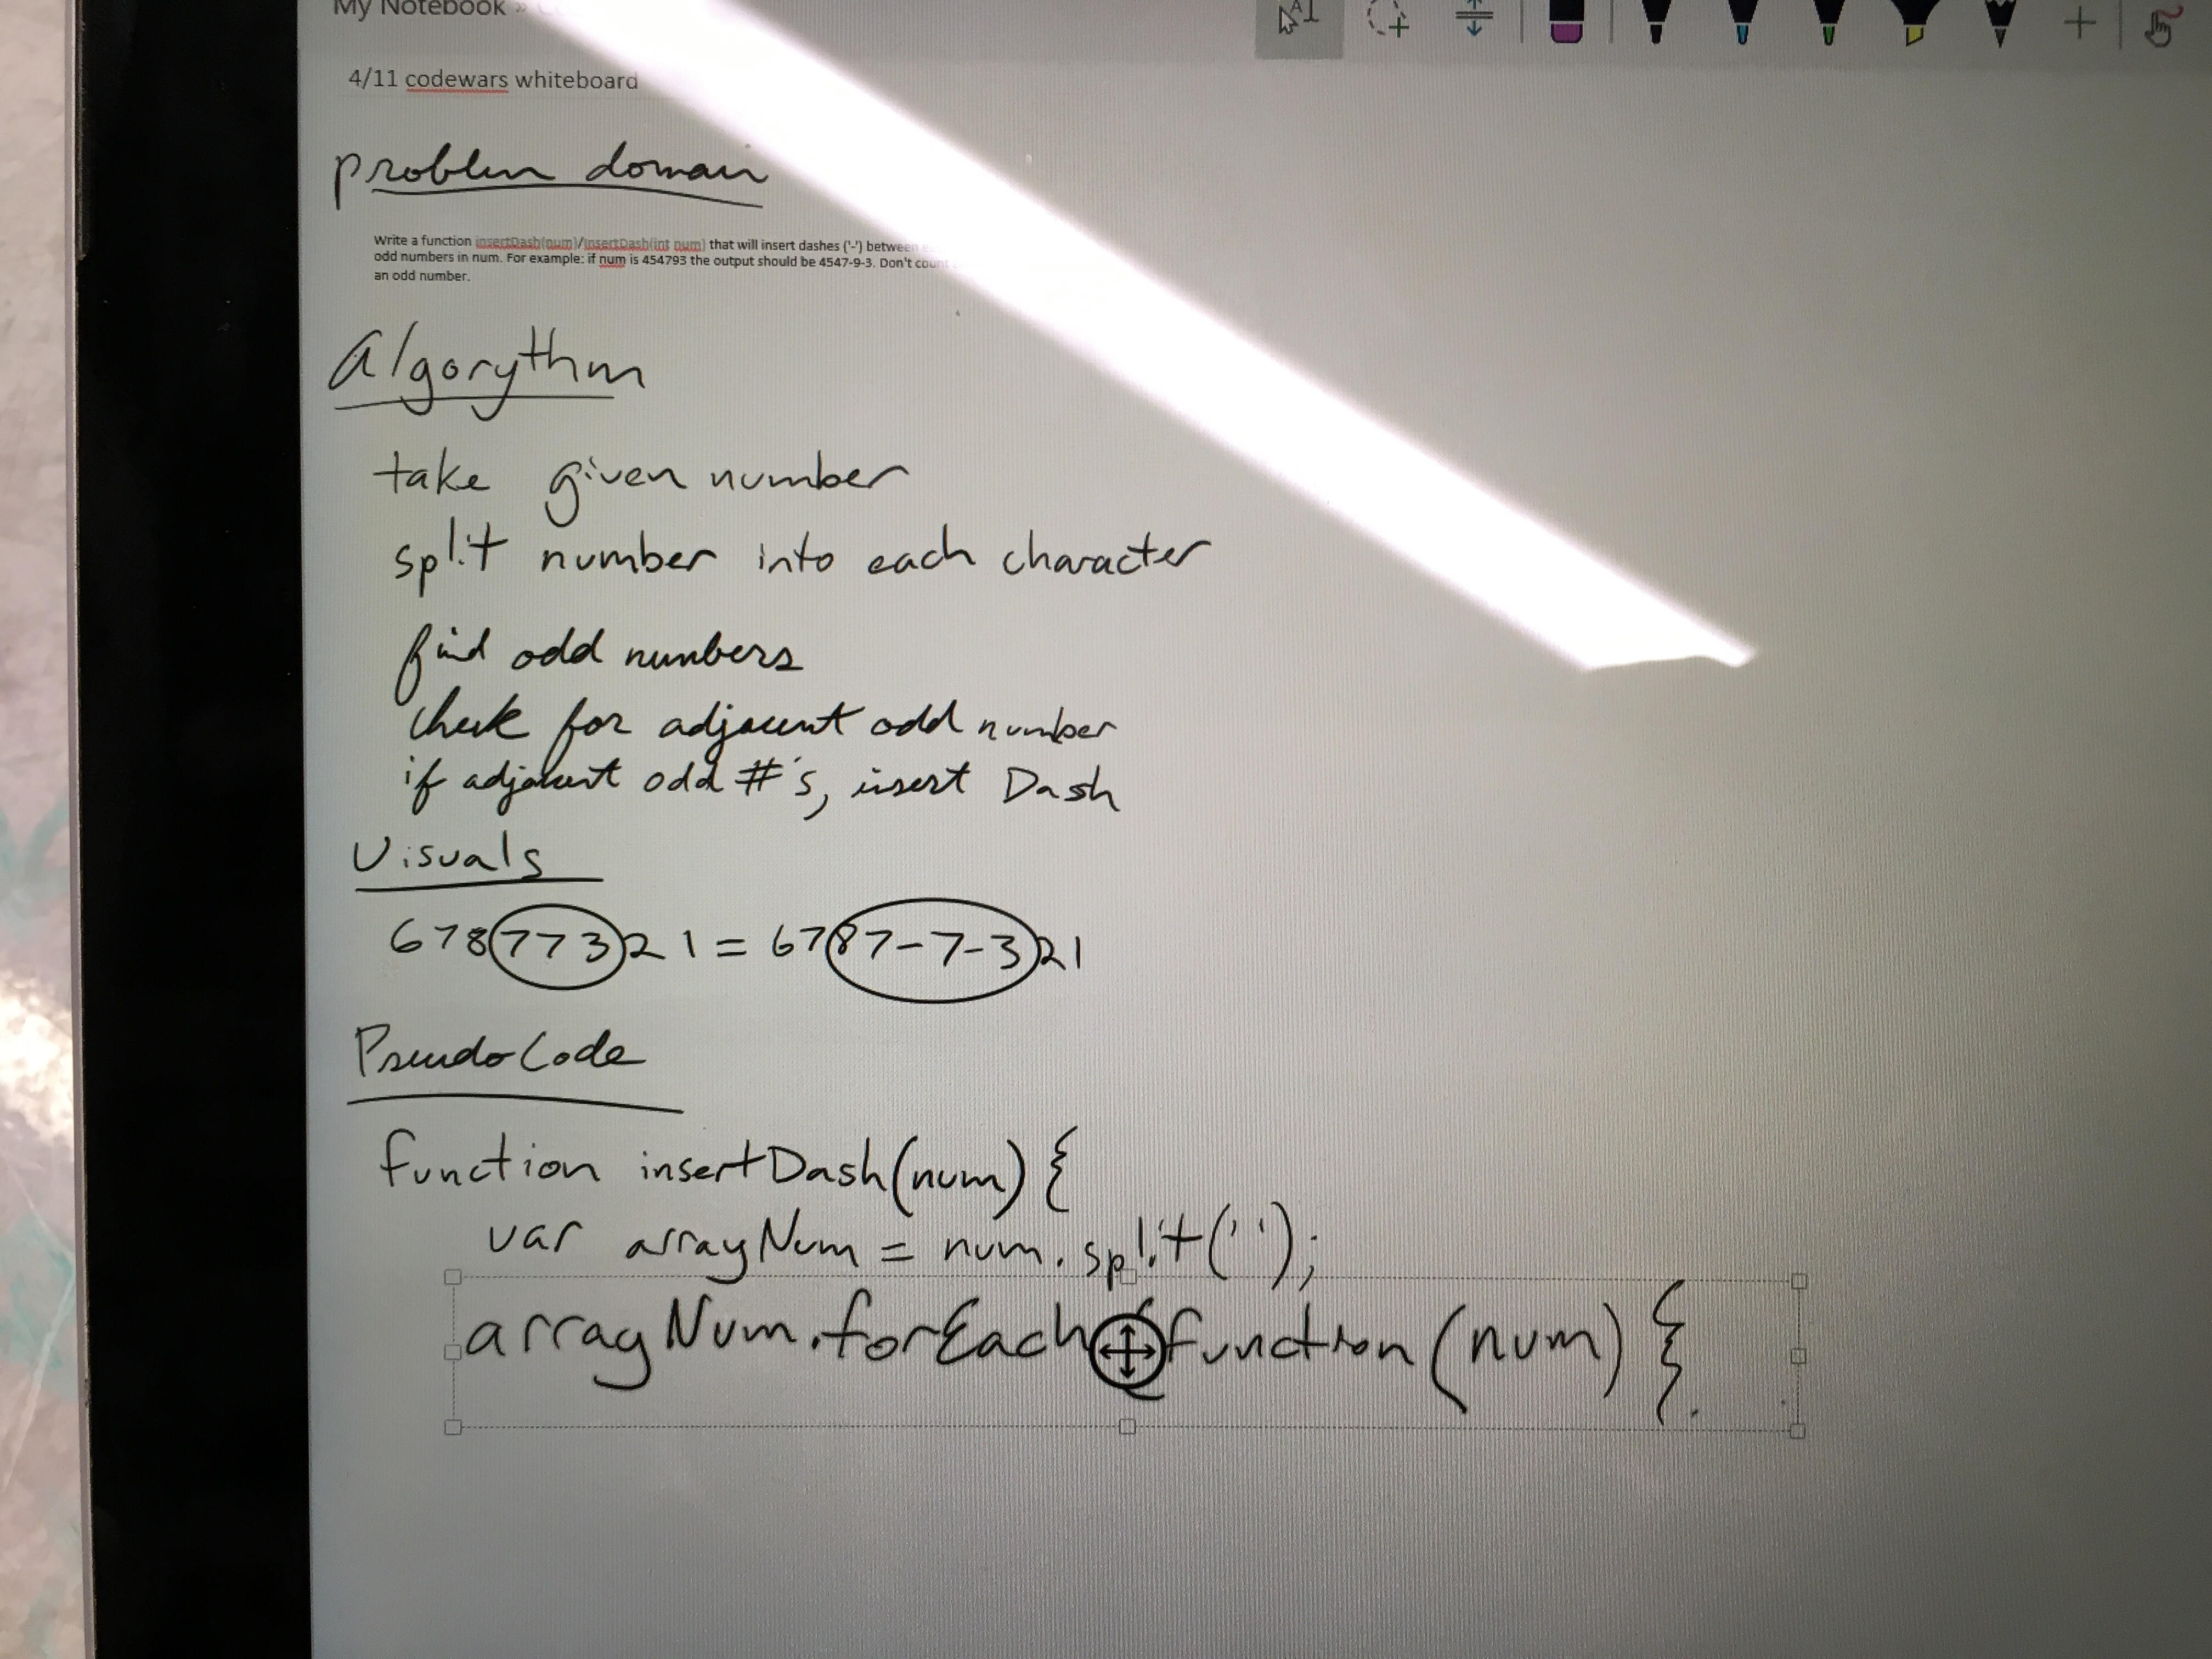 My Notebook »
4/11 codewars whiteboard
problem domain
Write a function insertDash(num)/InsertDash(int num) that will insert dashes ('-') between
odd numbers in num. For example: if num is 454793 the output should be 4547-9-3. Don't count
an odd number.
Algorythm
take given number
split number into each character
find odd numbers
check for adjacent odd number
if adjacent odd #'s, insert Dash
Visuals
67877321 = 6787-7-321
PseudoCode
function insertDash(num) {
var arrayNum = num.split('');
arrayNum.forEach(function(num) {